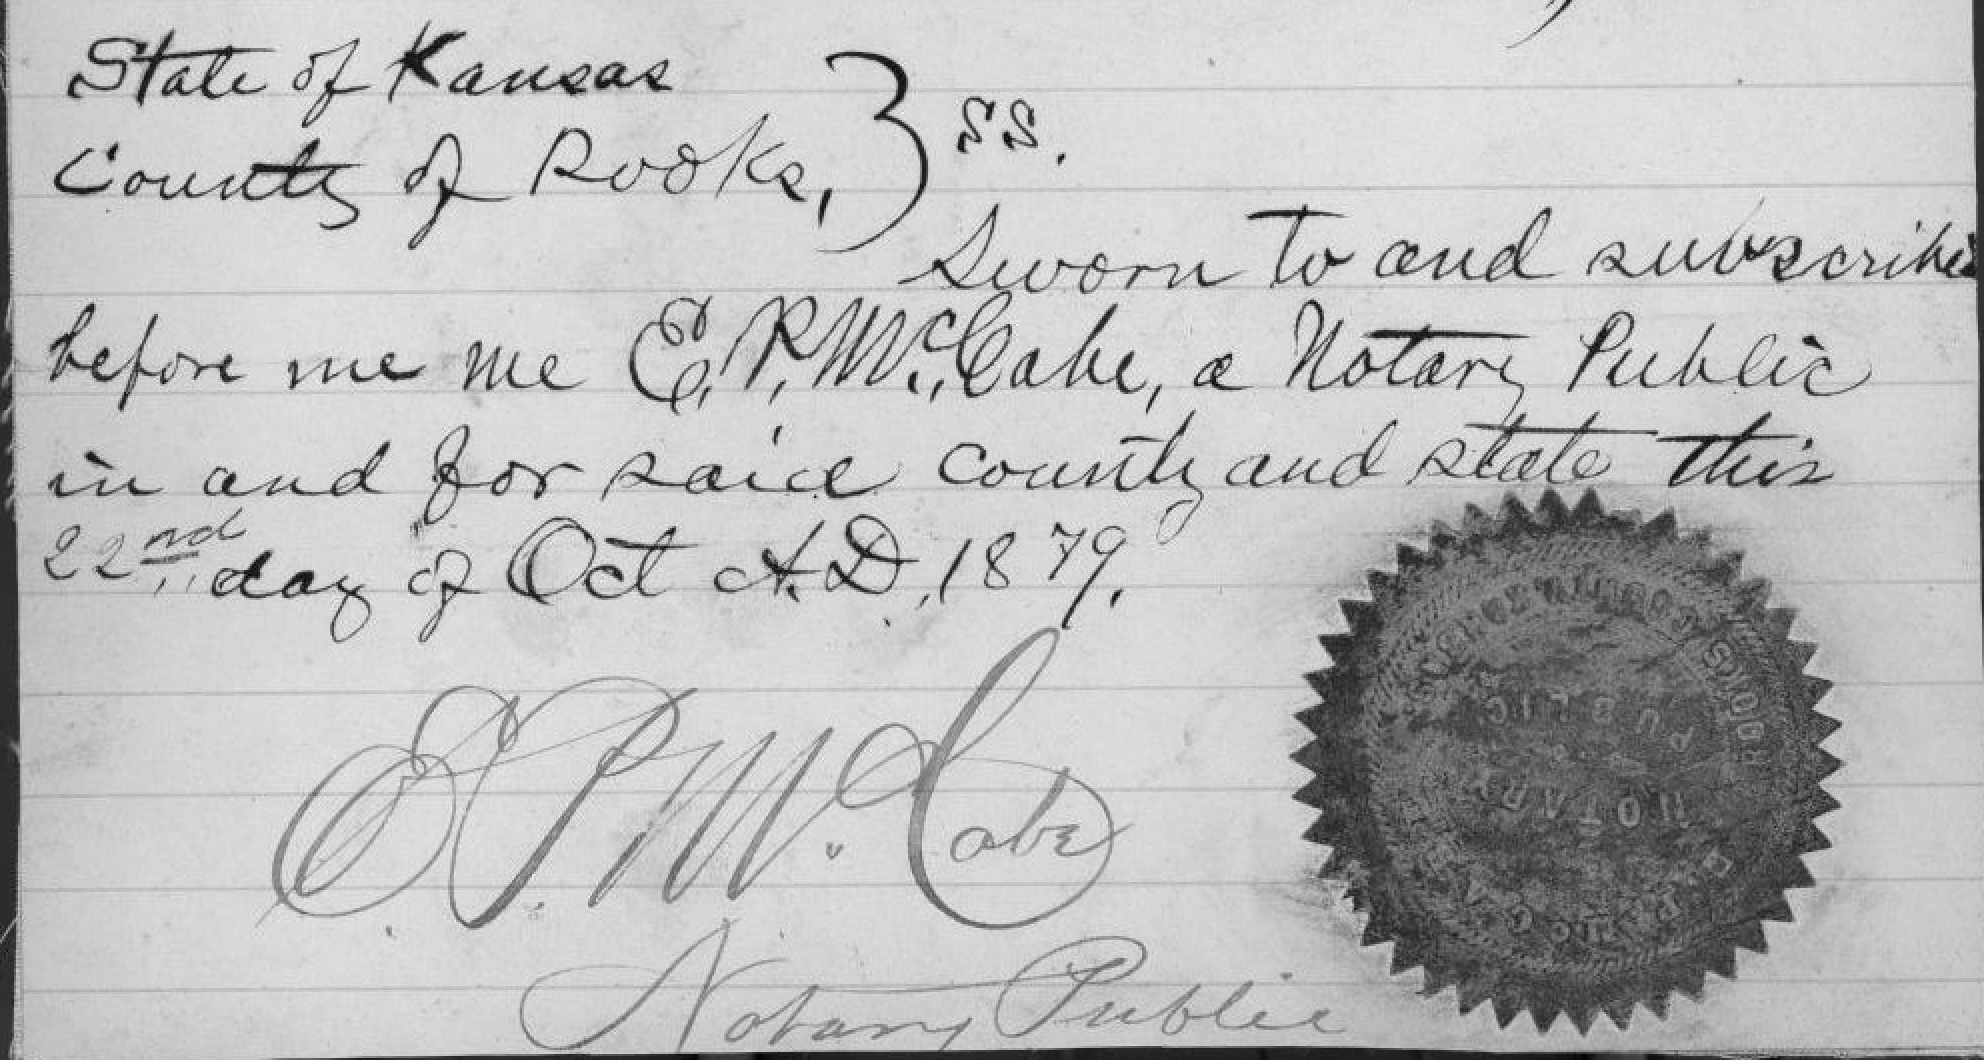 State of Kansas
County of Rooks, } SS.
Sworn to and subscribed
before me me E. P. McCabe, a Notary Public
in and for said county and state this
22nd day of Oct A.D, 1879.
E. P. McCabe
Notary Public
ROOKS COUNTY KANSAS
PUBLIC
NOTARY